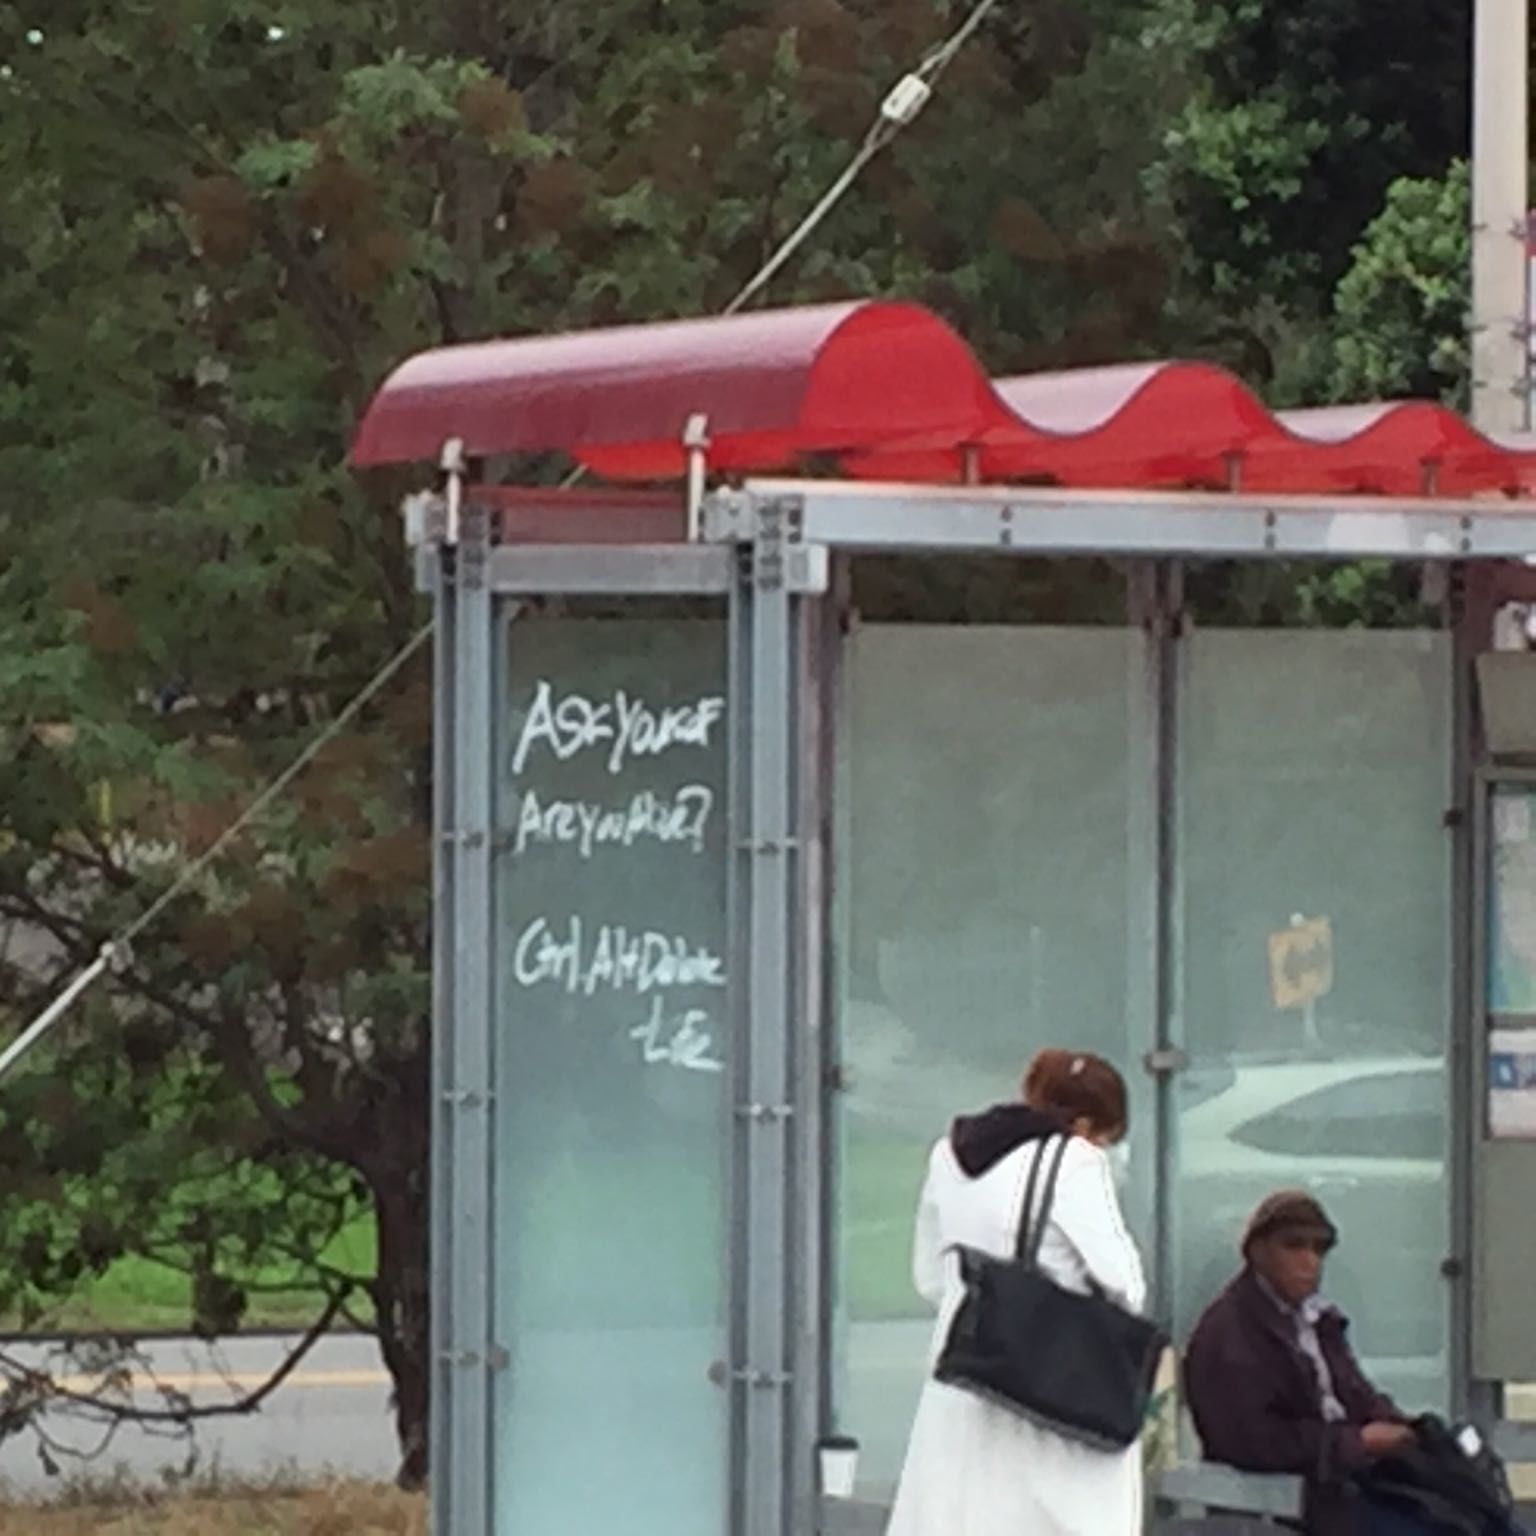 Ask Yourself
Are you Alive?
Ctrl, Alt Delete
Life